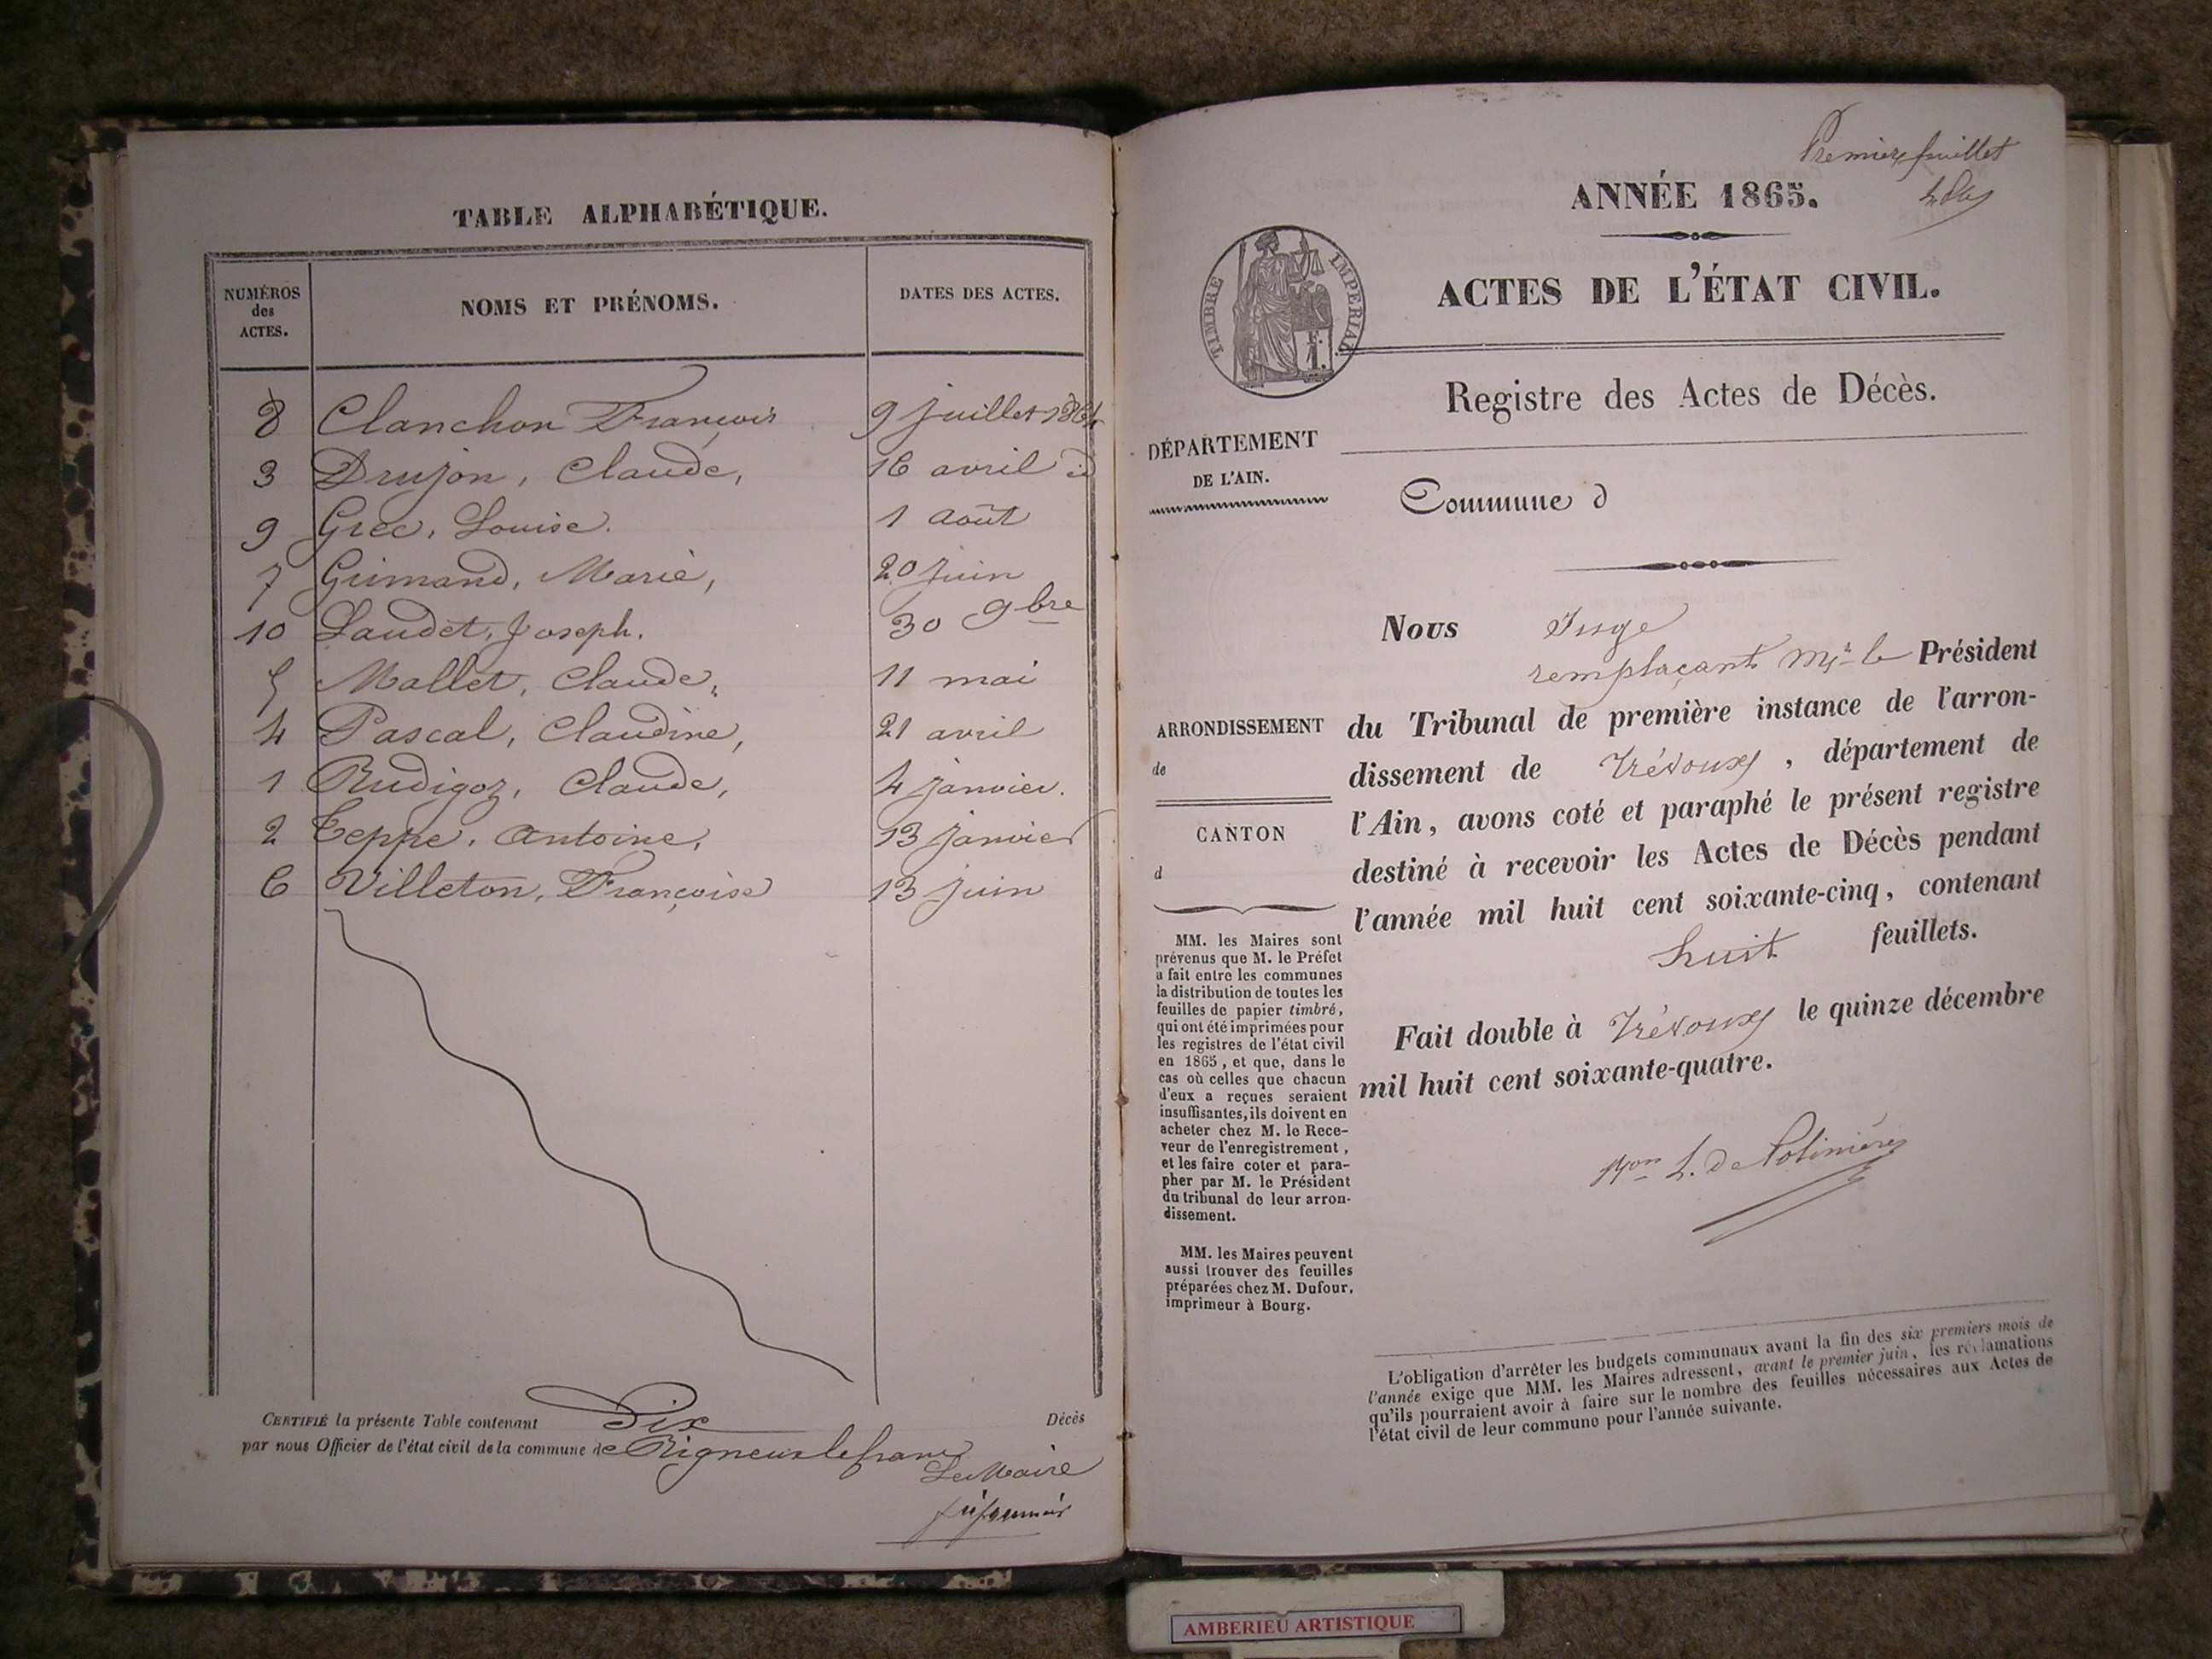 TABLE ALPHABÉTIQUE.
NUMÉROS des ACTES. NOMS ET PRÉNOMS. DATES DES ACTES.
8 Clanchon François 9 juillet 1864
3 Drujon, Claude, 16 avril id
9 Grec, Louise. 1 août
7 Guimand, Marie, 20 juin
10 Laudet, Joseph. 30 9bre
5 Mallet, Claude, 11 mai
4 Pascal, Claudine, 21 avril
1 Rudigoz, Claude, 4 janvier.
2 Teppe, Antoine, 13 janvier
6 Villeton, Françoise 13 juin
CERTIFIÉ la présente Table contenant Dix Décès
par nous Officier de l'état civil de la commune de Rigneux le franc
Le Maire
Premier feuillet
ANNÉE 1865.
TIMBRE IMPERIAL
ACTES DE L'ÉTAT CIVIL.
Registre des Actes de Décès.
DÉPARTEMENT
DE L'AIN.
Commune d
ARRONDISSEMENT
de
CANTON
d
MM. les Maires sont
prévenus que M. le Préfet
a fait entre les communes
la distribution de toutes les
feuilles de papier timbré,
qui ont été imprimées pour
les registres de l'état civil
en 1865, et que, dans le
cas où celles que chacun
d'eux a reçues seraient
insuffisantes, ils doivent en
acheter chez M. le Rece-
veur de l'enregistrement,
et les faire coter et para-
pher par M. le Président
du tribunal de leur arron-
dissement.
MM. les Maires peuvent
aussi trouver des feuilles
préparées chez M. Dufour,
imprimeur à Bourg.
Nous Juge
remplaçant Mr le Président
du Tribunal de première instance de l'arron-
dissement de Trévoux, département de
l'Ain, avons coté et paraphé le présent registre
destiné à recevoir les Actes de Décès pendant
l'année mil huit cent soixante-cinq, contenant
huit feuillets.
Fait double à Trévoux le quinze décembre
mil huit cent soixante-quatre.
L'obligation d'arrêter les budgets communaux avant la fin des six premiers mois de
l'année exige que MM. les Maires adressent, avant le premier juin, les réclamations
qu'ils pourraient avoir à faire sur le nombre des feuilles nécessaires aux Actes de
l'état civil de leur commune pour l'année suivante.
AMBERIEU ARTISTIQUE